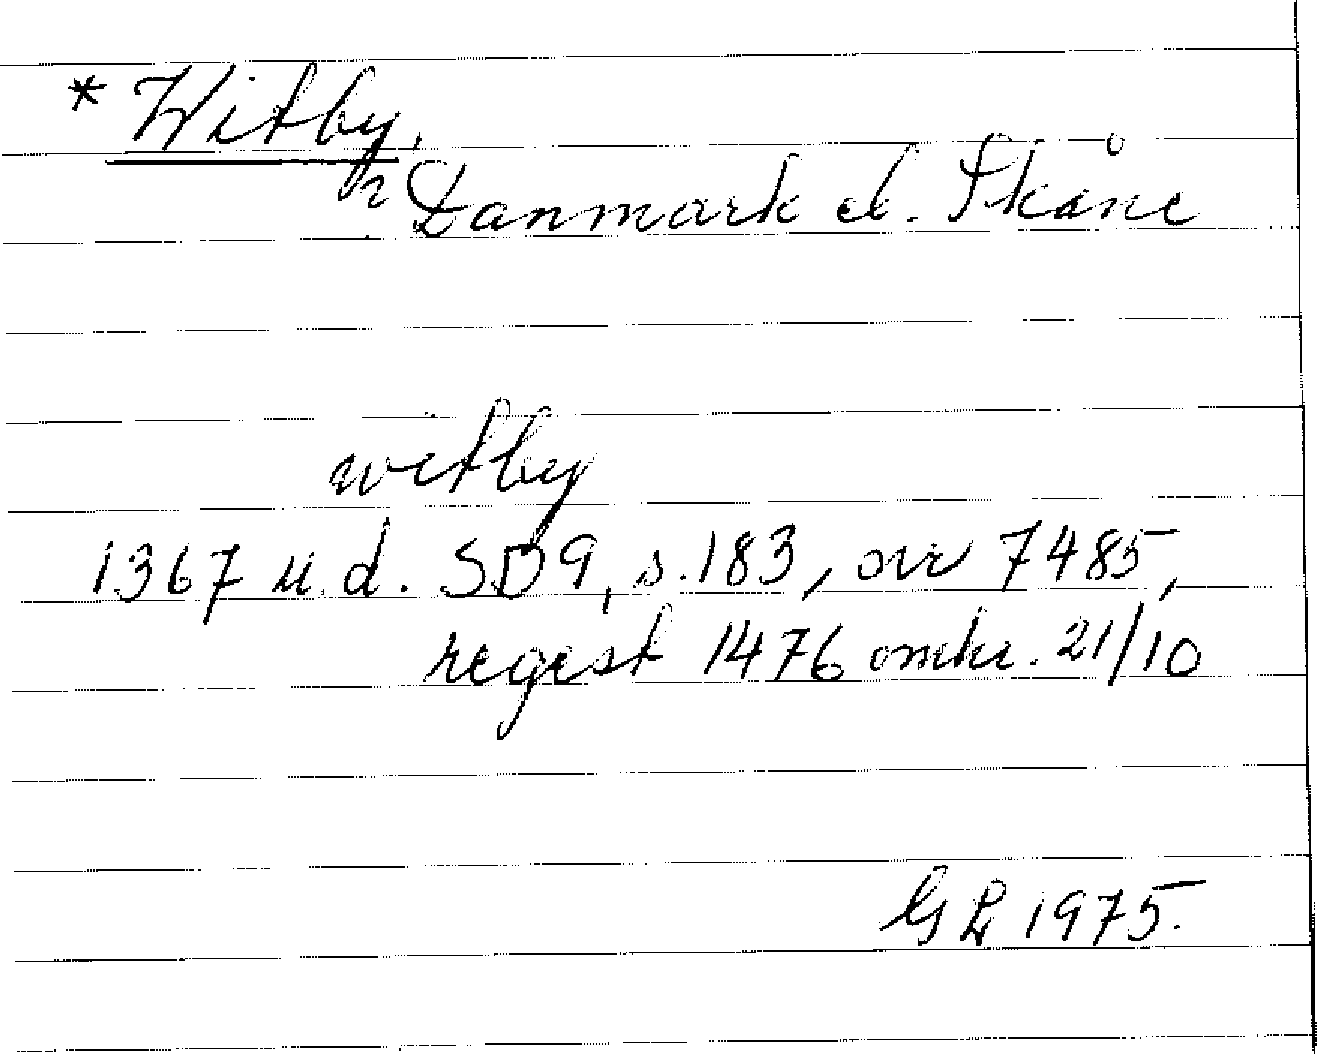 * Witby,
i Danmark el. Skåne
witby
1367 u.d. SD9, s. 183, or 7485,
regest 1476 omkr. 21/10
GL 1975.